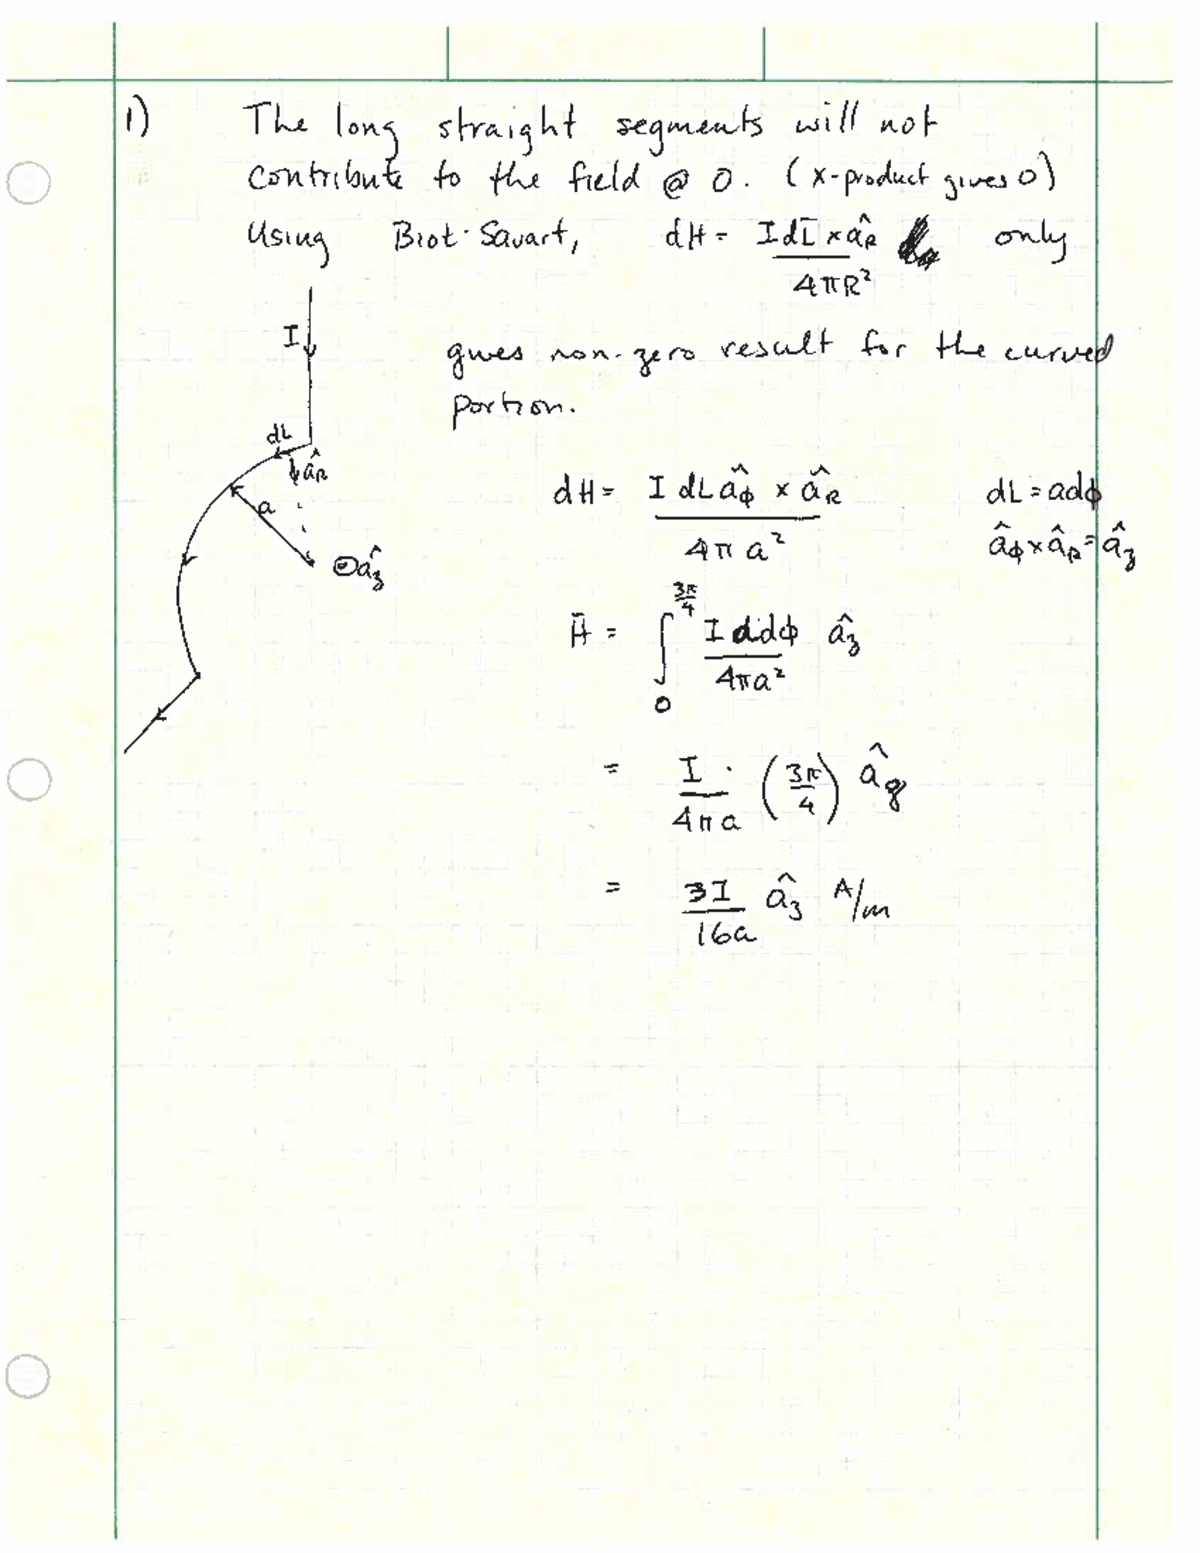 1) The long straight segments will not
contribute to the field @ 0. (x-product gives 0)
Using Biot-Savart, dH = I dL̄ × âR / 4πR² only
gives non-zero result for the curved
portion.
I
dL
âR
a
⊙ âz
dH = I dL âϕ × âR / 4π a²
dL = adϕ
âϕ × âR = âz
H̄ = ∫₀^{3π/4} I adϕ / 4πa² âz
= I / 4πa · (3π/4) âz
= 3I / 16a âz A/m